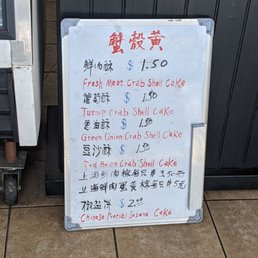 蟹殼黃
鮮肉酥 $1.50
Fresh Meat Crab Shell Cake
蘿蔔酥 $1.50
Turnip Crab Shell Cake
葱油酥 $1.50
Green Onion Crab Shell Cake
豆沙酥 $1.50
Red Bean Crab Shell Cake
上海鮮肉粽每只
上海鮮肉蛋黃粽每只$5元
椒鹽餅 $2.00
Chinese Cake